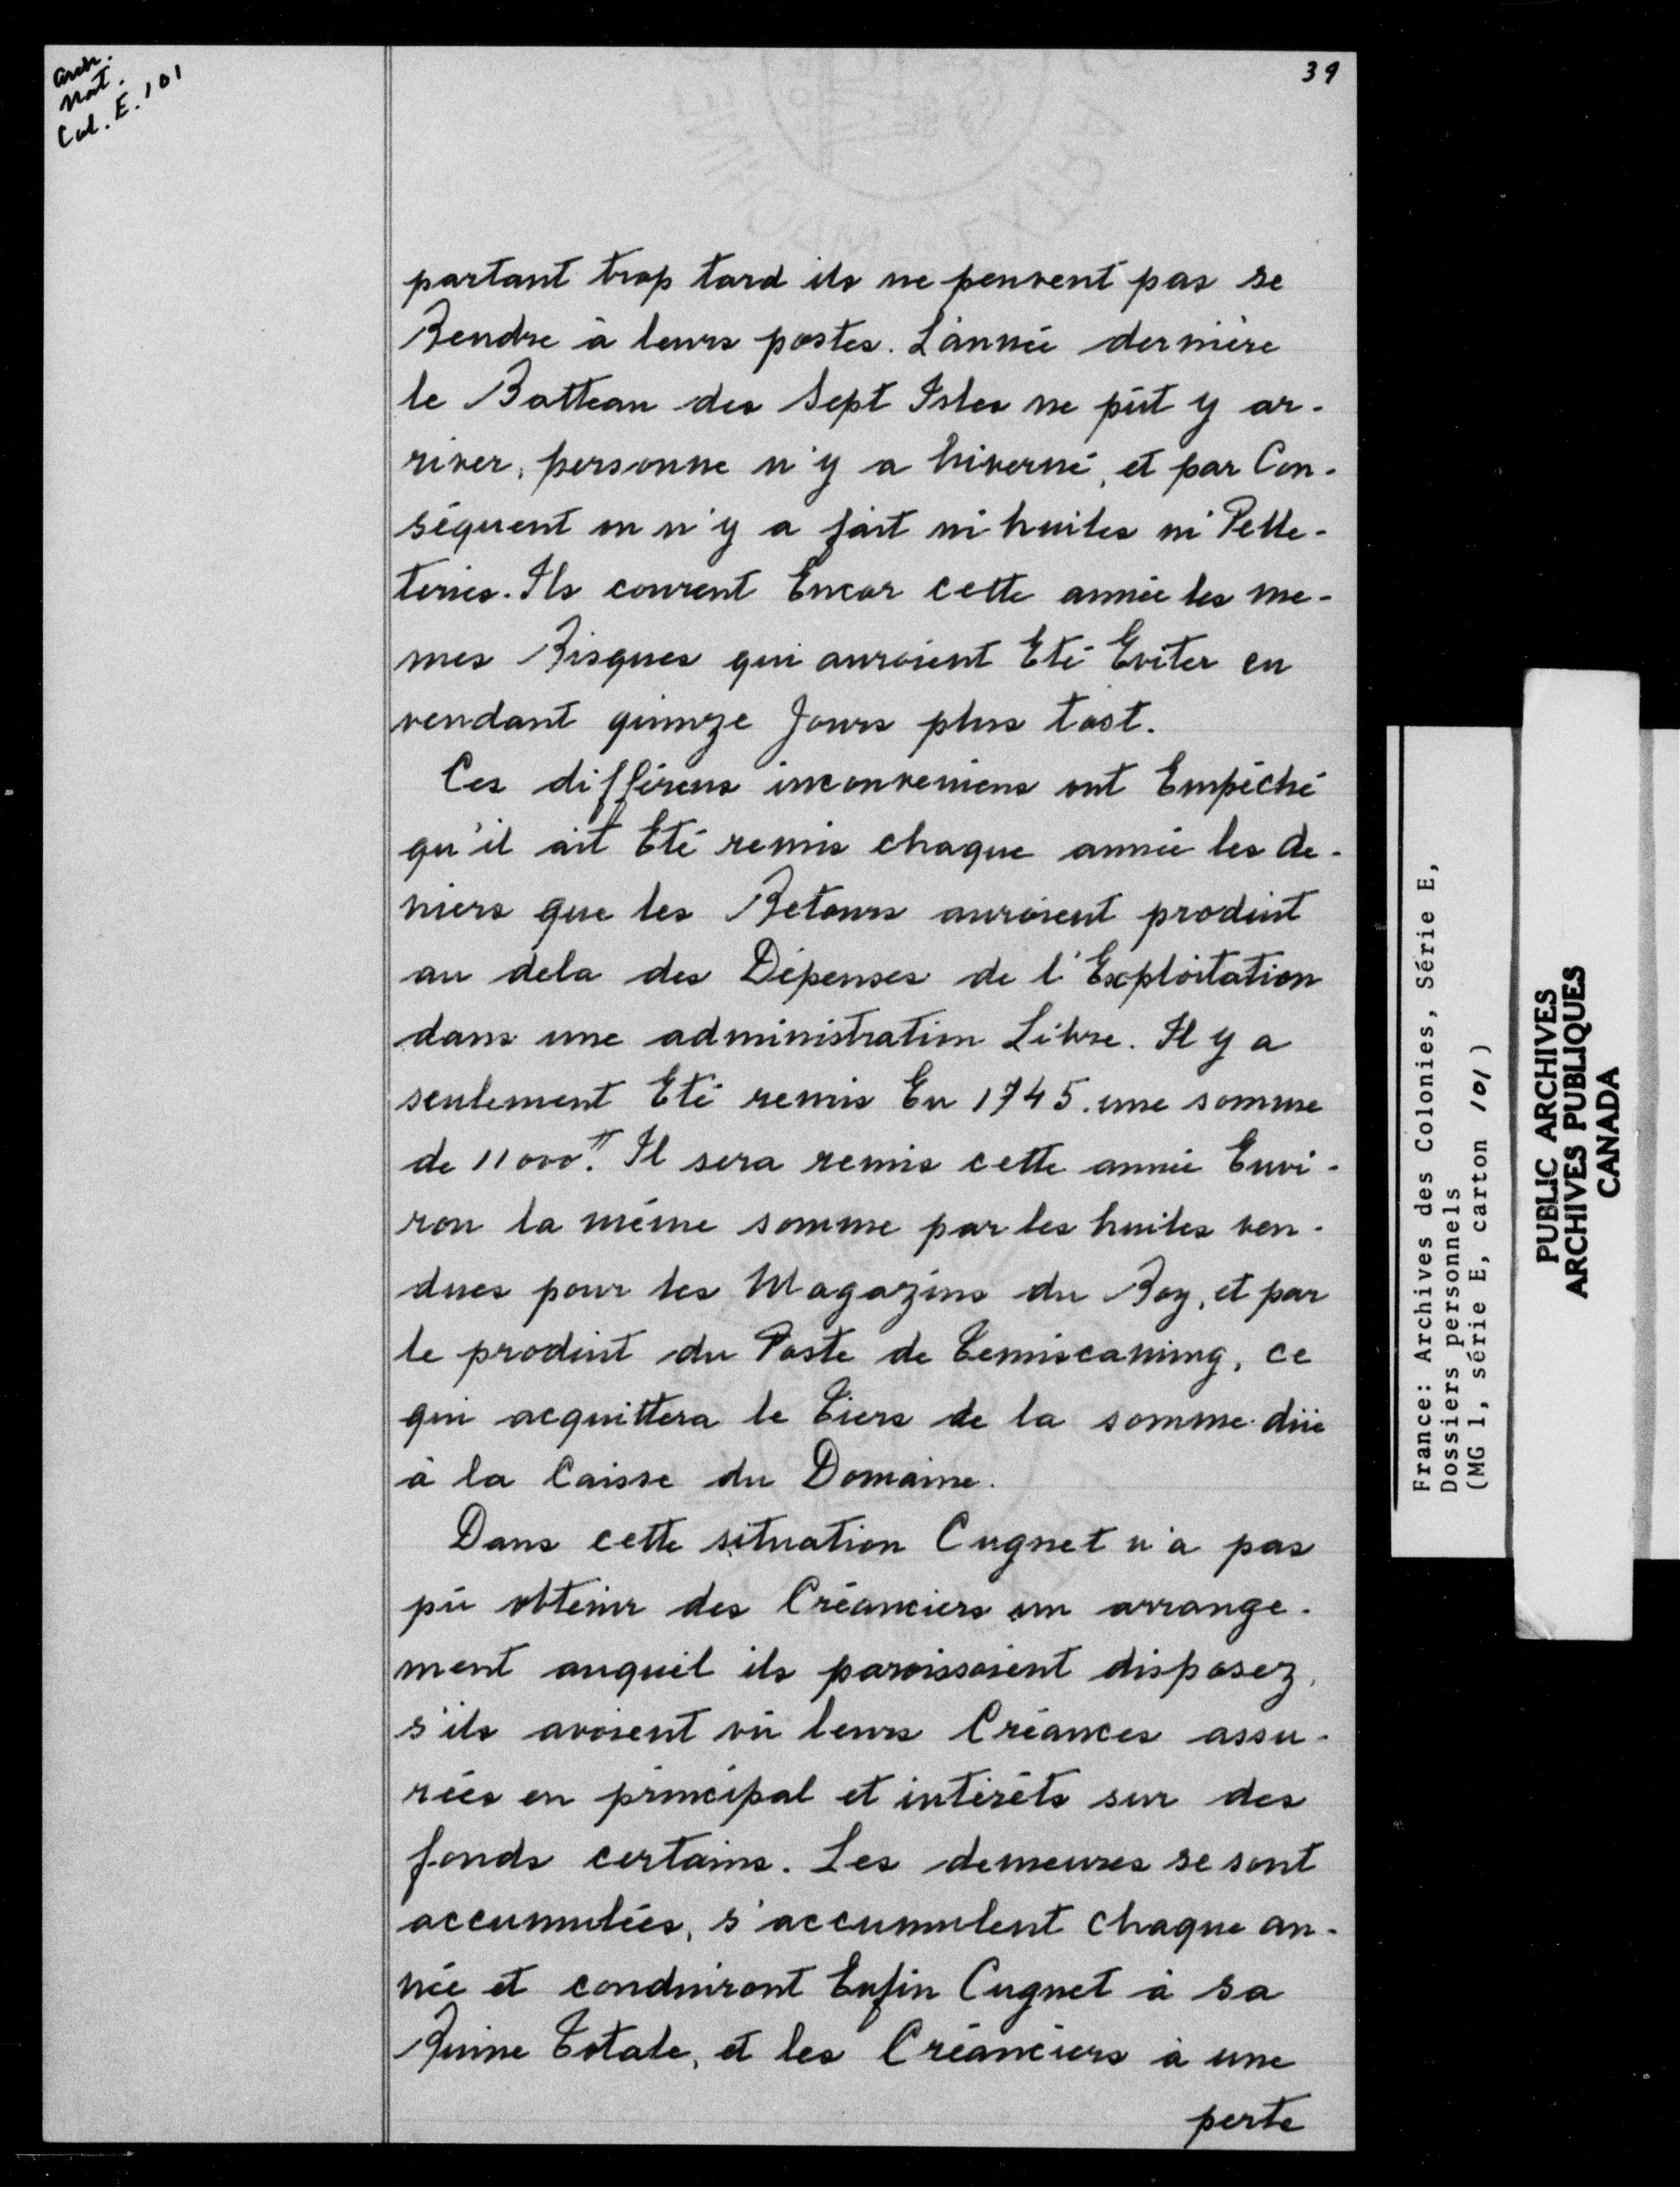 Arch.
Nat.
Col. E. 101
39
partant trop tard ils ne peuvent pas se
Rendre à leurs postes. L'année dernière
le Batteau des Sept Isles ne pût y ar-
river, personne n'y a hiverné, et par Con-
séquent on n'y a fait ni huiles ni Pelle-
teries. Ils courent Encor cette année les me-
mes Risques qui auroient Eté Eviter en
vendant quinze Jours plus tost.
Ces différens inconveniens ont Empéché
qu'il ait Eté remis chaque année les de-
niers que les Retours auroient produit
au dela des Dépenses de l'Exploitation
dans une administration Libre. Il y a
seulement Eté remis En 1745. une somme
de 11000ᵗᵗ. Il sera remis cette année Envi-
ron la même somme par les huiles ven-
dues pour les Magazins du Roy, et par
le produit du Poste de Temiscaming, ce
qui acquittera le Tiers de la somme düe
à la Caisse du Domaine.
Dans cette situation Cugnet n'a pas
pû obtenir des Créanciers un arrange-
ment auquel ils paroissoient disposez,
s'ils avoient vû leurs Créances assu-
rées en principal et intérêts sur des
fonds certains. Les demeures se sont
accumulées, s'accumulent chaque an-
née et conduiront Enfin Cugnet à sa
Ruine Totale, et les Créanciers à une
perte
France: Archives des Colonies, Série E,
Dossiers personnels
(MG 1, série E, carton 101)
PUBLIC ARCHIVES
ARCHIVES PUBLIQUES
CANADA